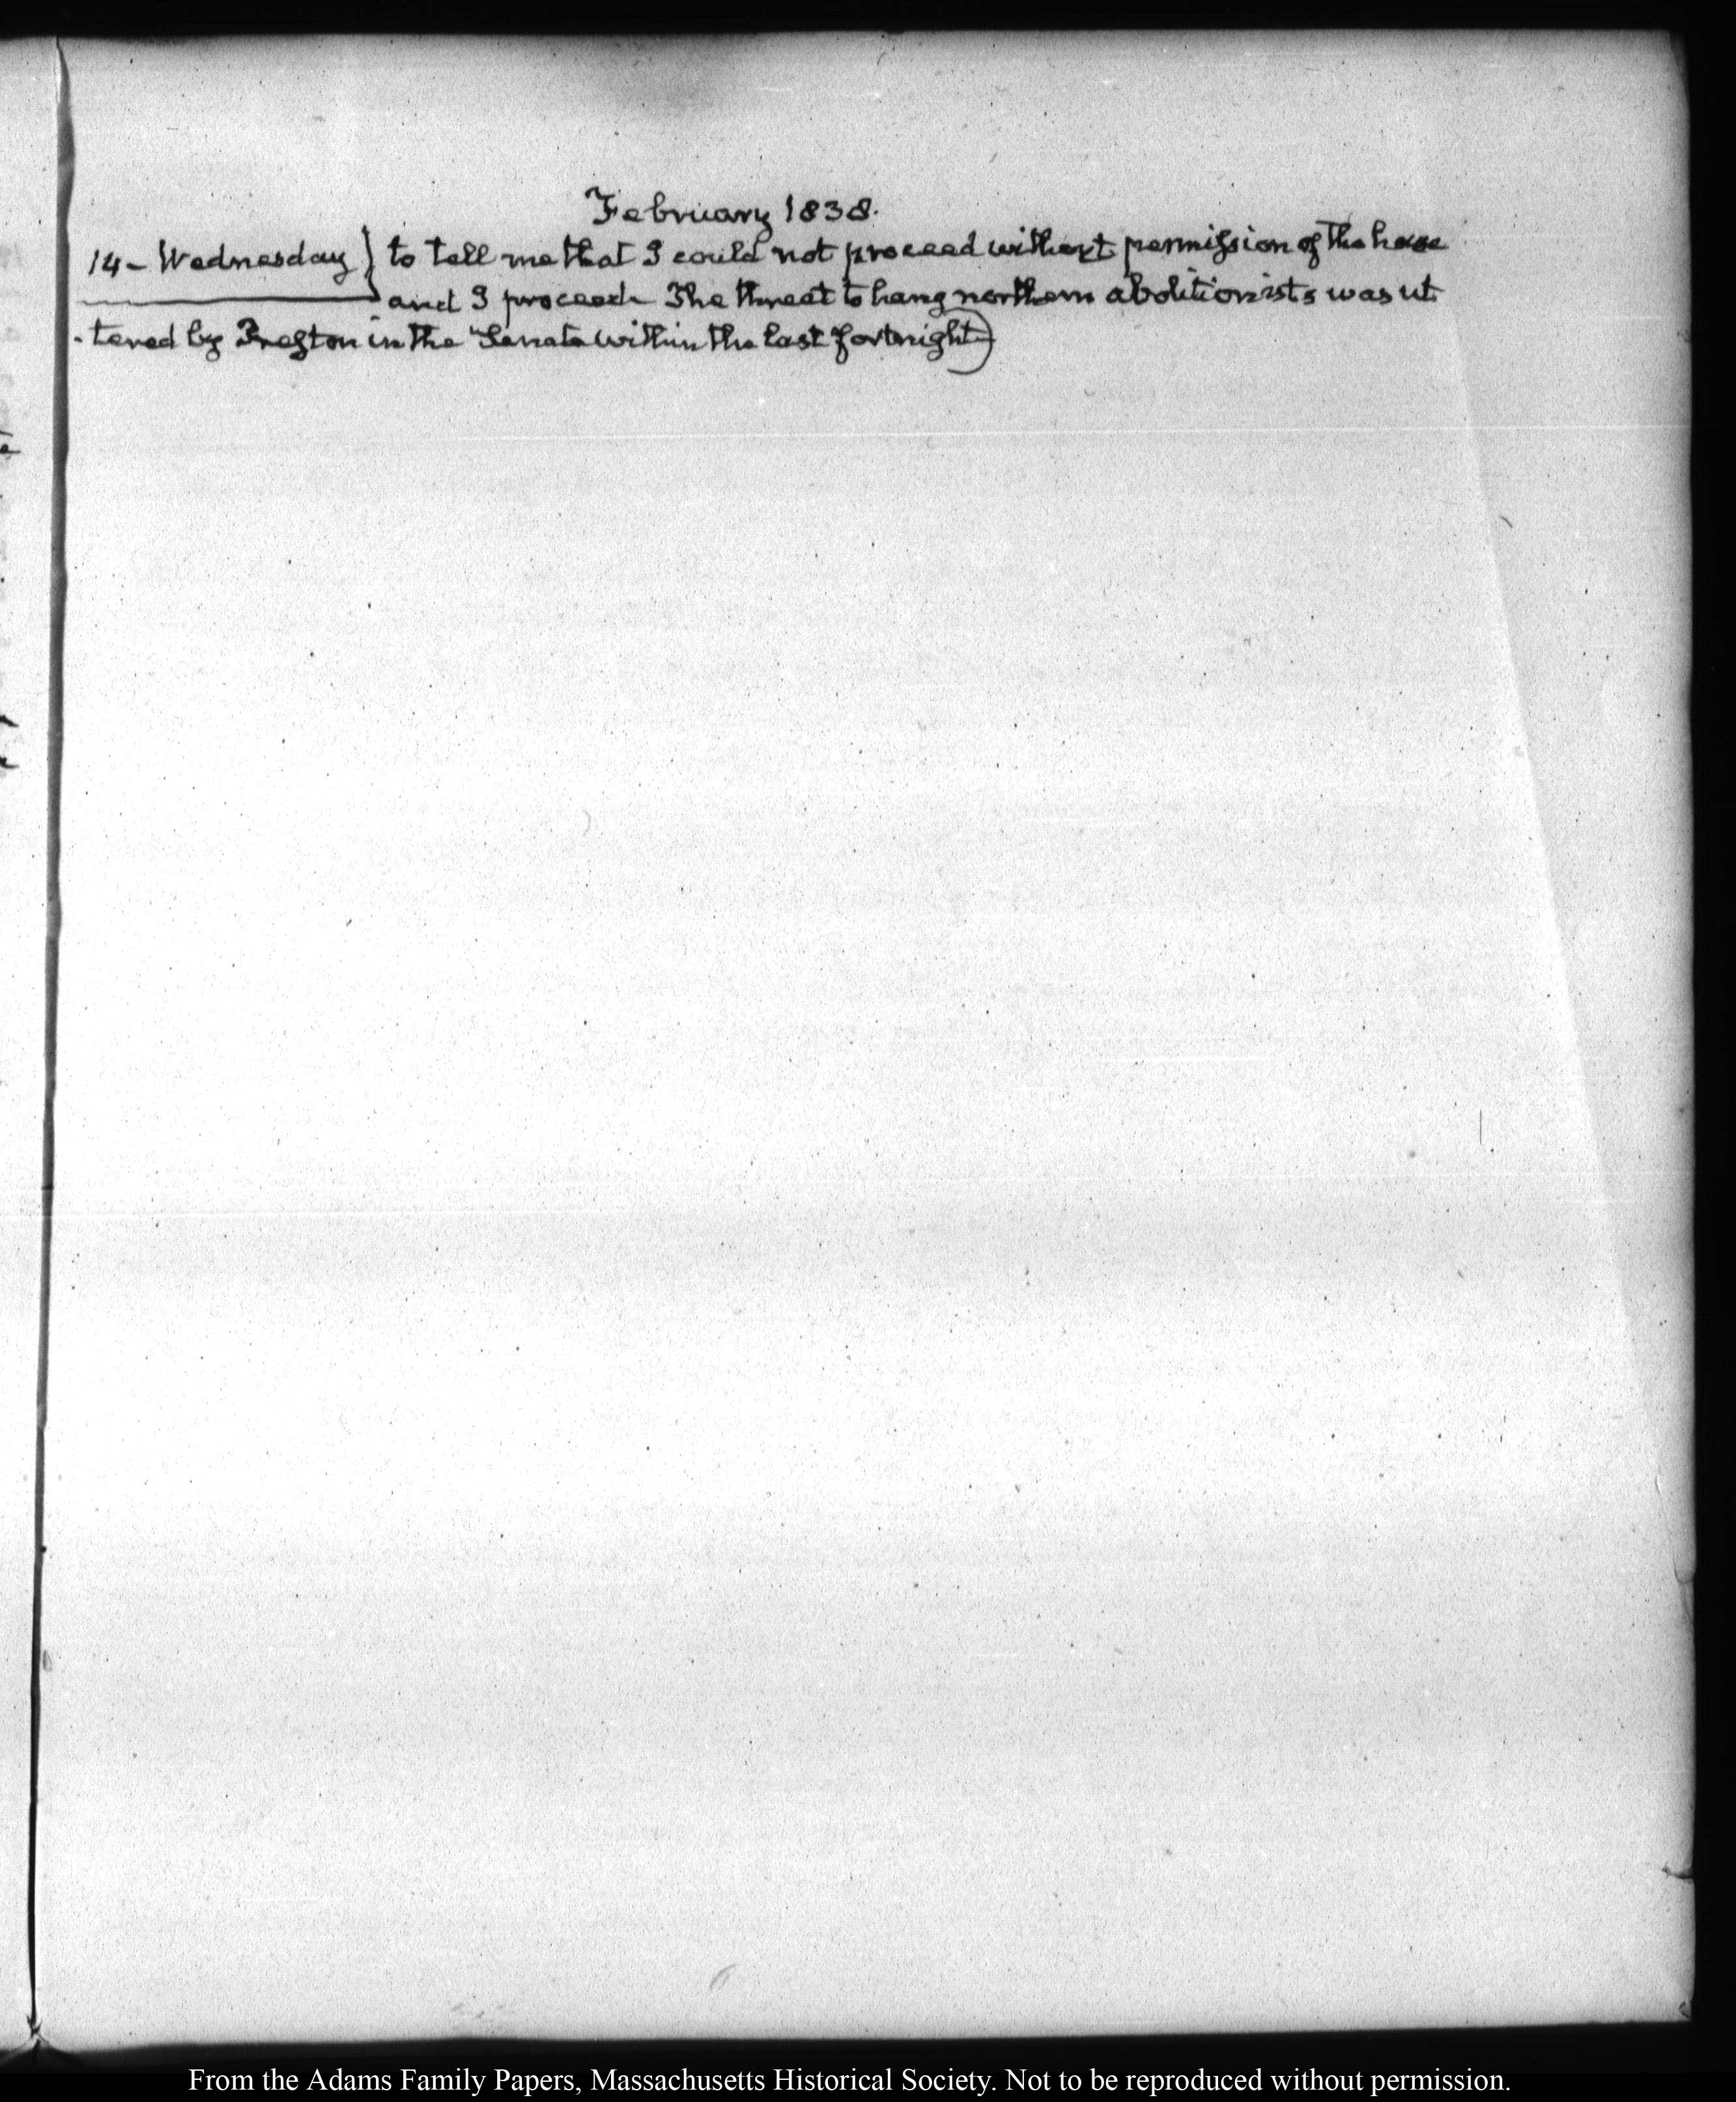 February 1838.
14- Wednesday } to tell me that I could not proceed without permission of the house
and I proceed. The threat to hang northern abolitionists was ut
-tered by Preston in the Senate within the last fortnight)
From the Adams Family Papers, Massachusetts Historical Society. Not to be reproduced without permission.